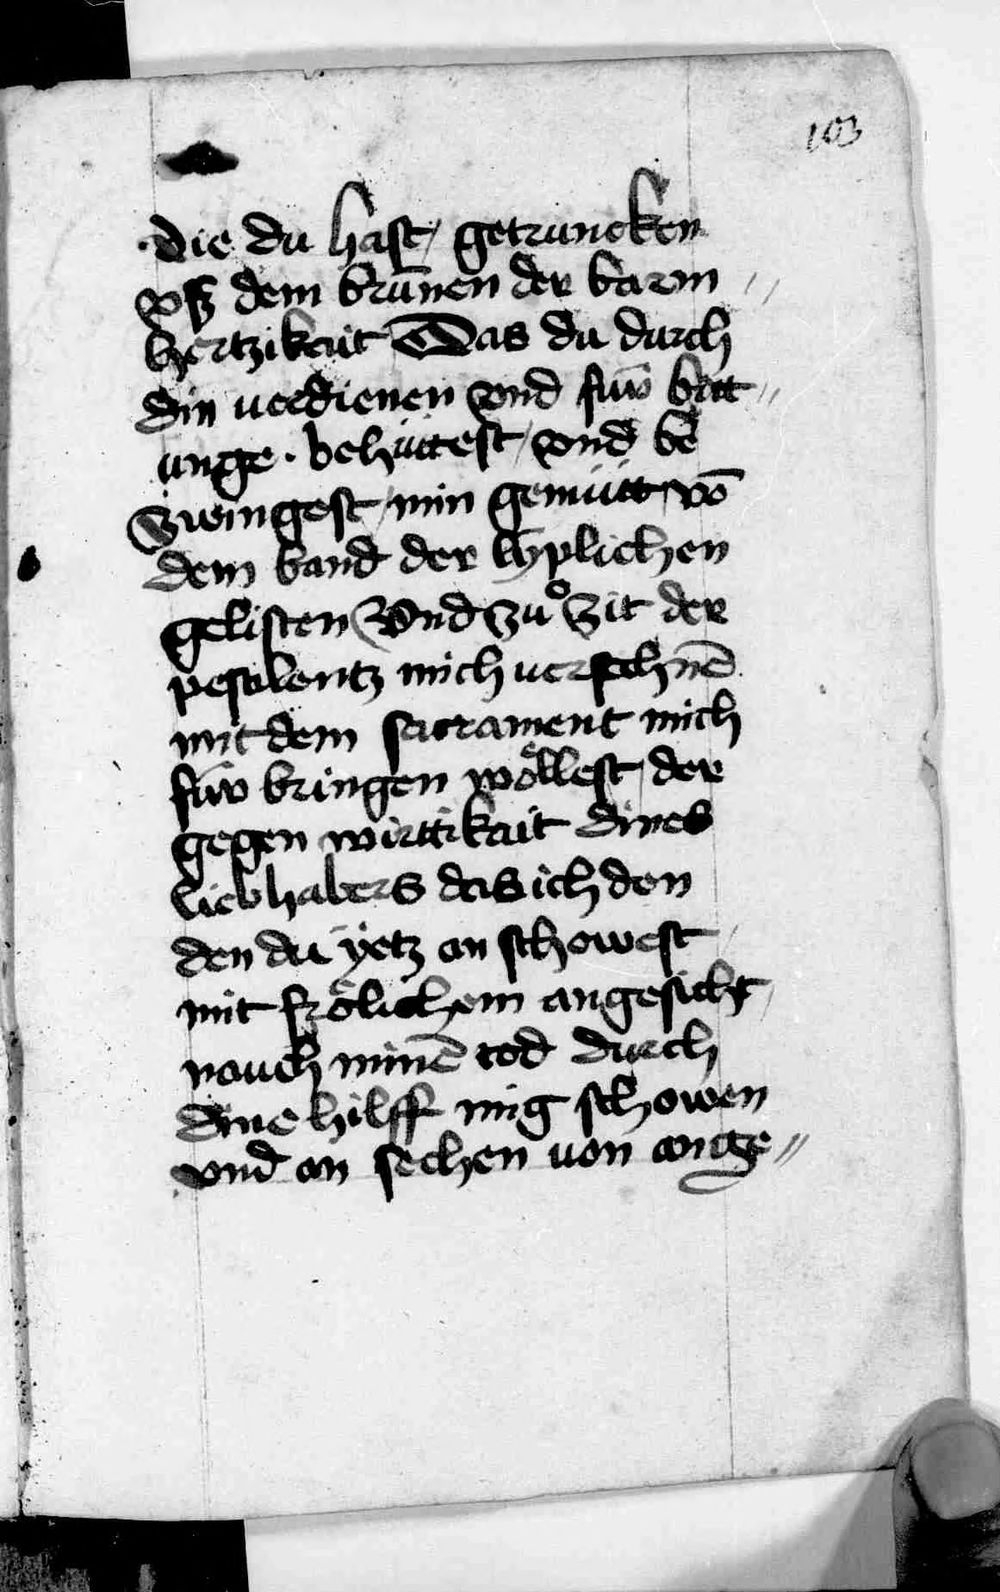 103
die du hast / getruncken
vsz dem brūnen der barm //
hertzikait Das du durch
din uerdienen vnd fuͤr bitt //
unge · behüttest / vnd be
zwingest / min gemütt vō
dem band der lyplichen
gelisten Vnd zuͦ zit der
pestilentz mich uersechnē
mit dem sacrament mich
für bringen woͤllest / der
gegen wirttikait dines
Liebhabers das ich den
den du yetz an schowest
mit froͤlichem angesicht /
nauch minē tod durch
dine hilff mig schowen
vnd an sechen von ange //